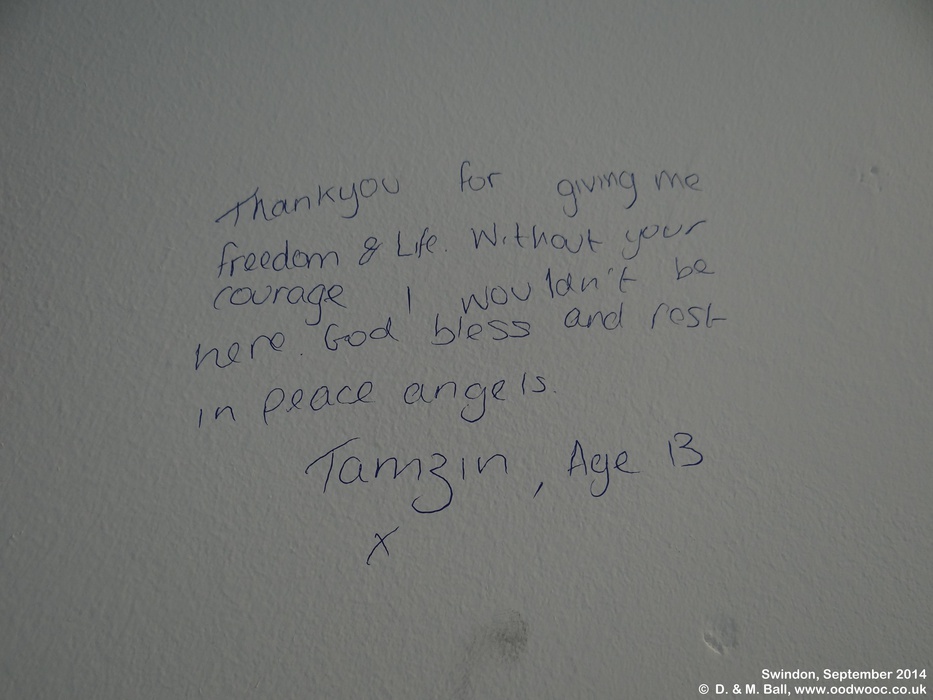 Thankyou for giving me
freedom & Life. Without your
courage I wouldn't be
here. God bless and rest
in peace angels.
Tamzin, Age 13
x
Swindon, September 2014
© D. & M. Ball, www.oodwooc.co.uk